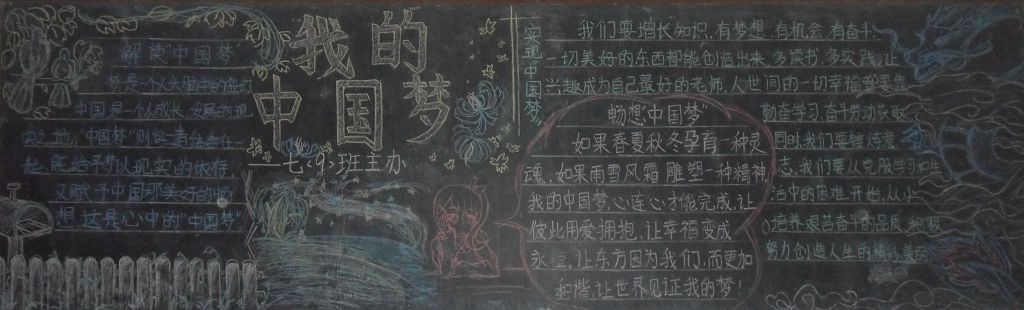 解读"中国梦"
梦是一个人头脑中的虚幻
中国是一个人成长、发展的现
实之地,"中国梦"则将二者结合在一
起,既给予你以现实的依存,
又赋予中国那美好的畅
想,这是心中的"中国梦"
我的
中国梦
七、9、班主办
实现中国梦
我们要增长知识,有梦想,有机会,有奋斗,
一切美好的东西都能创造出来,多读书,多实践,让
兴趣成为自己最好的老师,人世间的一切幸福都要靠
勤奋学习,奋斗的动力来取
同时,我们要锤炼意
志,我们要从克服学习和生
活中的困难开始,从小
培养艰苦奋斗的品质,积极
努力创造人生的精彩
畅想中国梦"
如果春夏秋冬孕育一种灵
魂,如果雨雪风霜雕塑一种精神
我的中国梦,心连心才能完成,让
彼此用爱拥抱,让幸福变成
永恒,让东方因为我们,而更加
和谐,让世界见证我的梦!